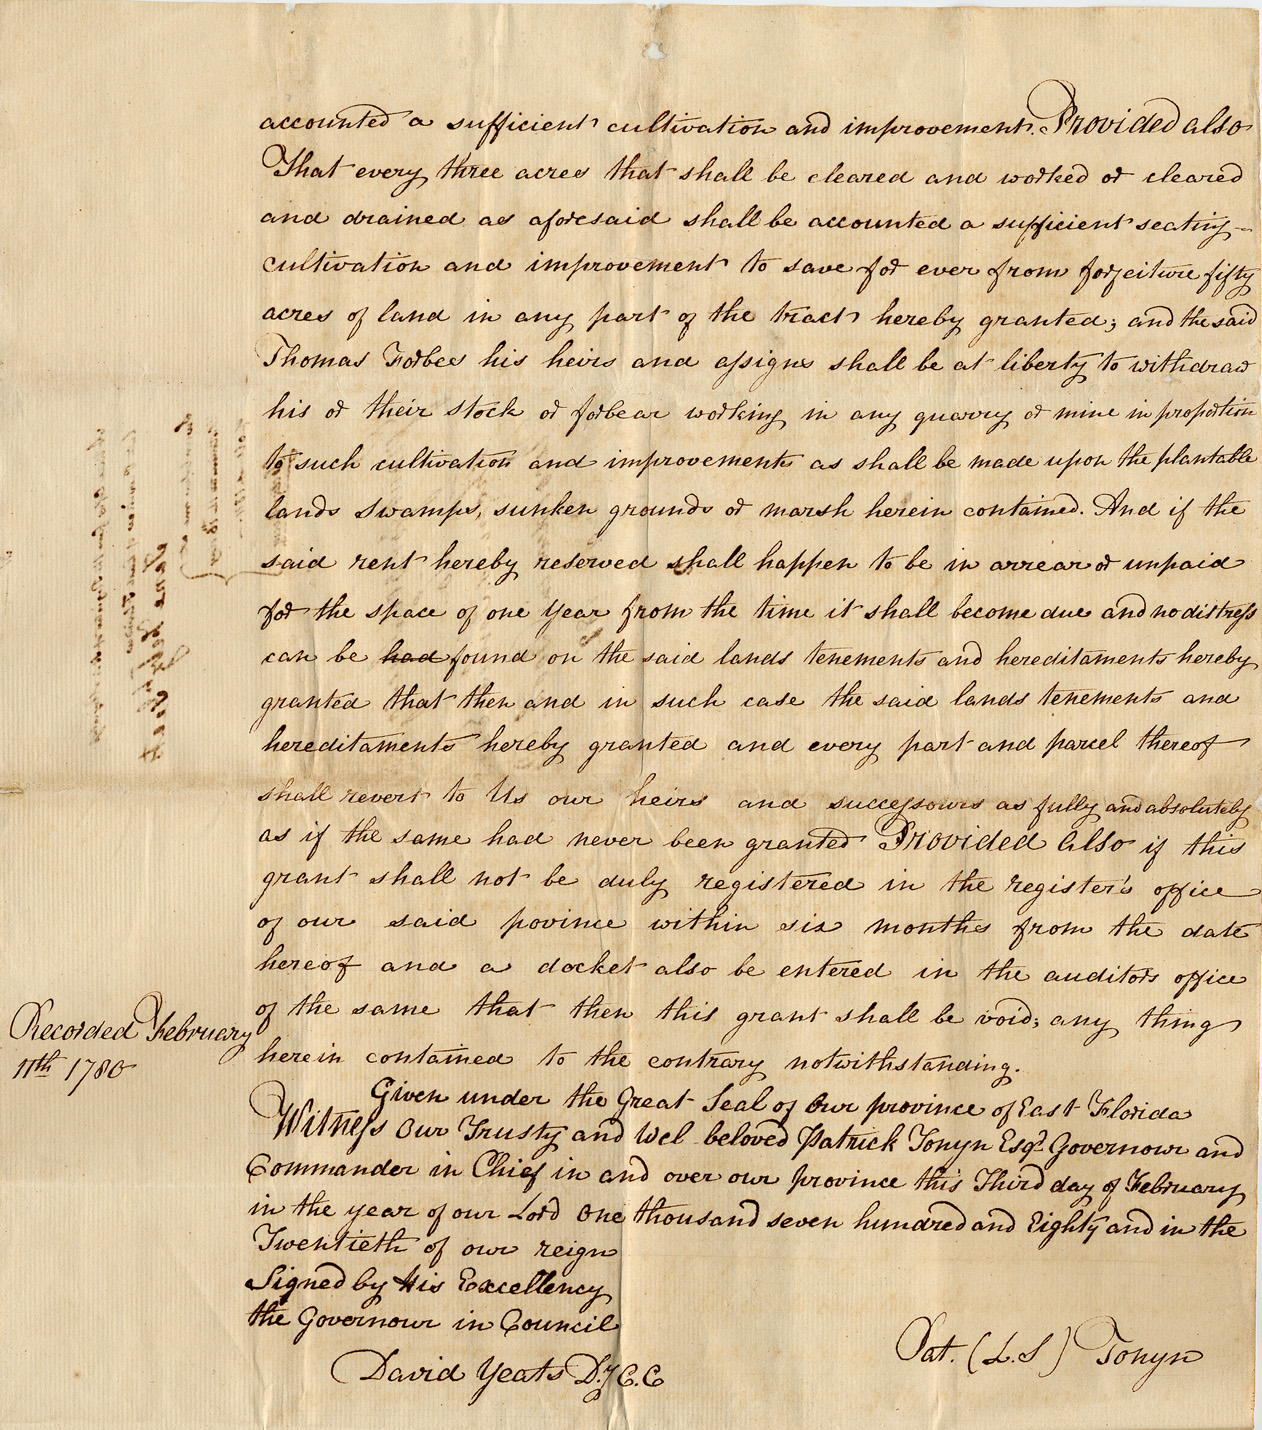 accounted a sufficient cultivation and improvement. Provided also
That every three acres that shall be cleared and worked or cleared
and drained as aforesaid shall be accounted a sufficient seating
cultivation and improvement to save for ever from forfeiture fifty
acres of land in any part of the tract hereby granted; and the said
Thomas Forbes his heirs and assigns shall be at liberty to withdraw
his or their stock or forbear working in any quarry or mine in proportion
to such cultivation and improvements as shall be made upon the plantable
lands Swamps, sunken grounds or marsh herein contained. And if the
said rent hereby reserved shall happen to be in arrear or unpaid
for the space of one Year from the time it shall become due and no distress
can be had found on the said lands tenements and hereditaments hereby
granted that then and in such case the said lands tenements and
hereditaments hereby granted and every part and parcel thereof
shall revert to Us our heirs and successours as fully and absolutely
as if the same had never been granted Provided also if this
grant shall not be duly registered in the register's office
of our said povince within six months from the date
hereof and a docket also be entered in the auditors office
of the same that then this grant shall be void; any thing
herein contained to the contrary notwithstanding.
Recorded February
11th 1780
Given under the Great Seal of Our province of East Florida
Witness Our Trusty and Wel beloved Patrick Tonyn Esqr. Governour and
Commander in Chief in and over our province this Third day of February
in the year of our Lord One thousand seven hundred and Eighty and in the
Twentieth of our reign
Signed by His Excellency
the Governour in Council
David Yeats D.y C.C
Pat. (L.S) Tonyn